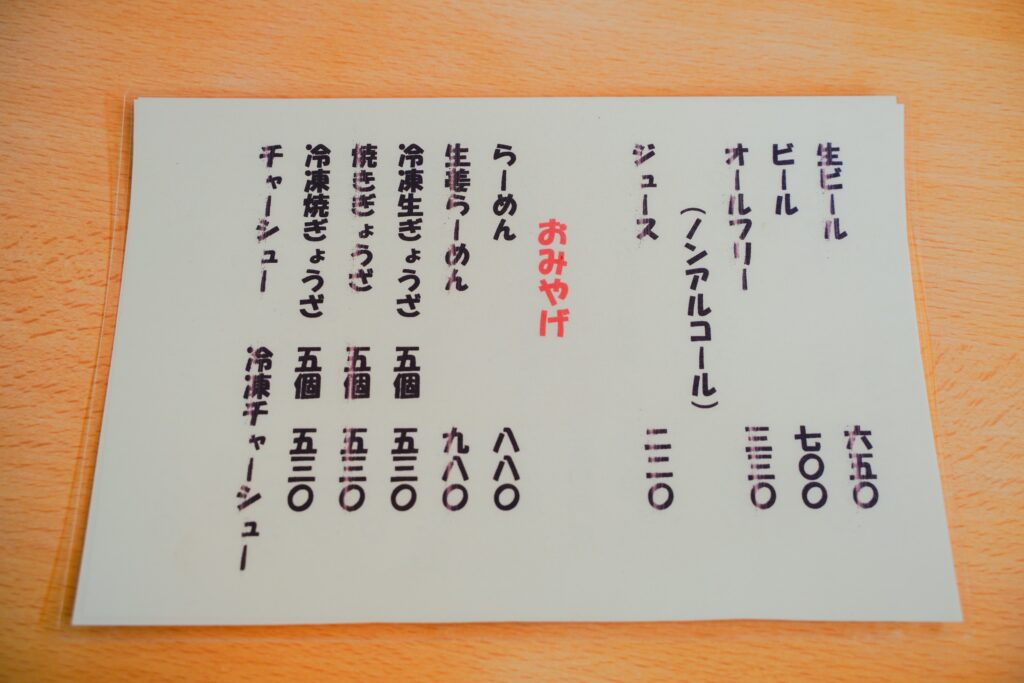 生ビール 六五〇
ビール 七〇〇
オールフリー 三三〇
(ノンアルコール)
ジュース 二二〇
おみやげ
らーめん 八八〇
生姜らーめん 九八〇
冷凍生ぎょうざ 五個 五三〇
焼きぎょうざ 五個 五三〇
冷凍焼ぎょうざ 五個 五三〇
チャーシュー 冷凍チャーシュー